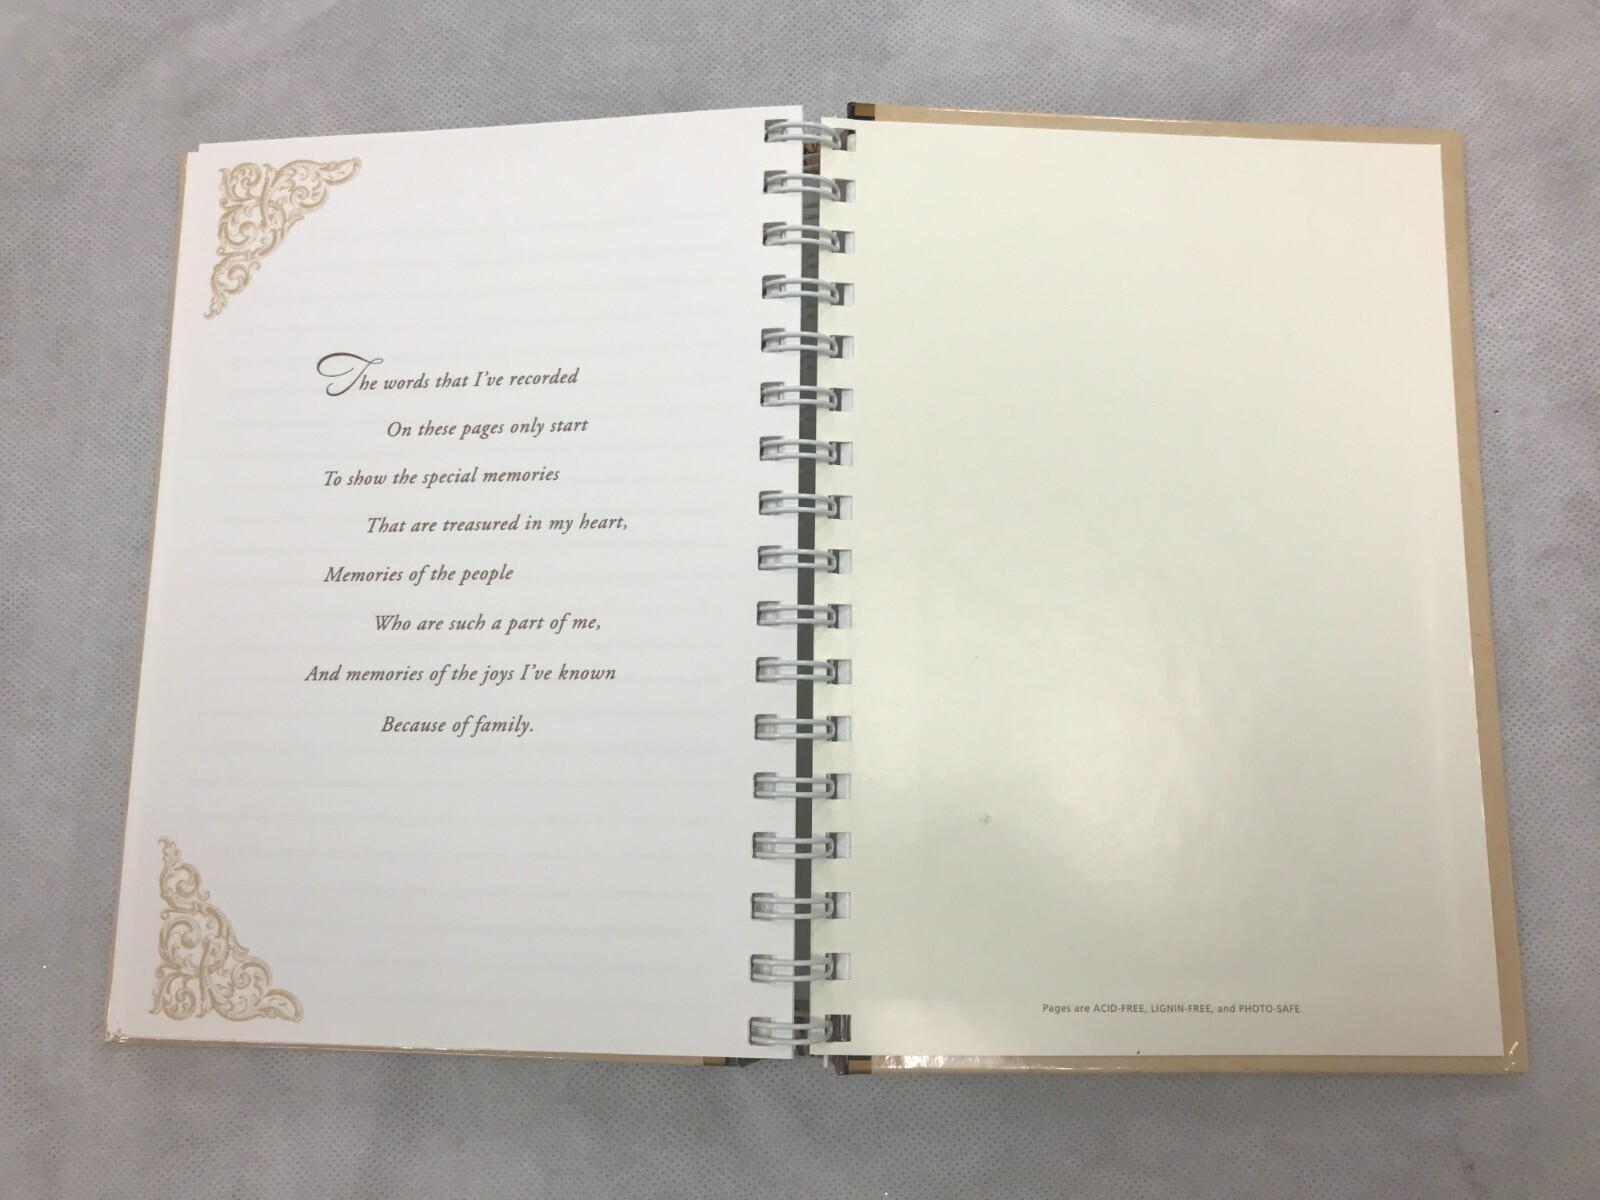 The words that I've recorded
On these pages only start
To show the special memories
That are treasured in my heart,
Memories of the people
Who are such a part of me,
And memories of the joys I've known
Because of family.
Pages are ACID-FREE, LIGNIN-FREE, and PHOTO-SAFE.